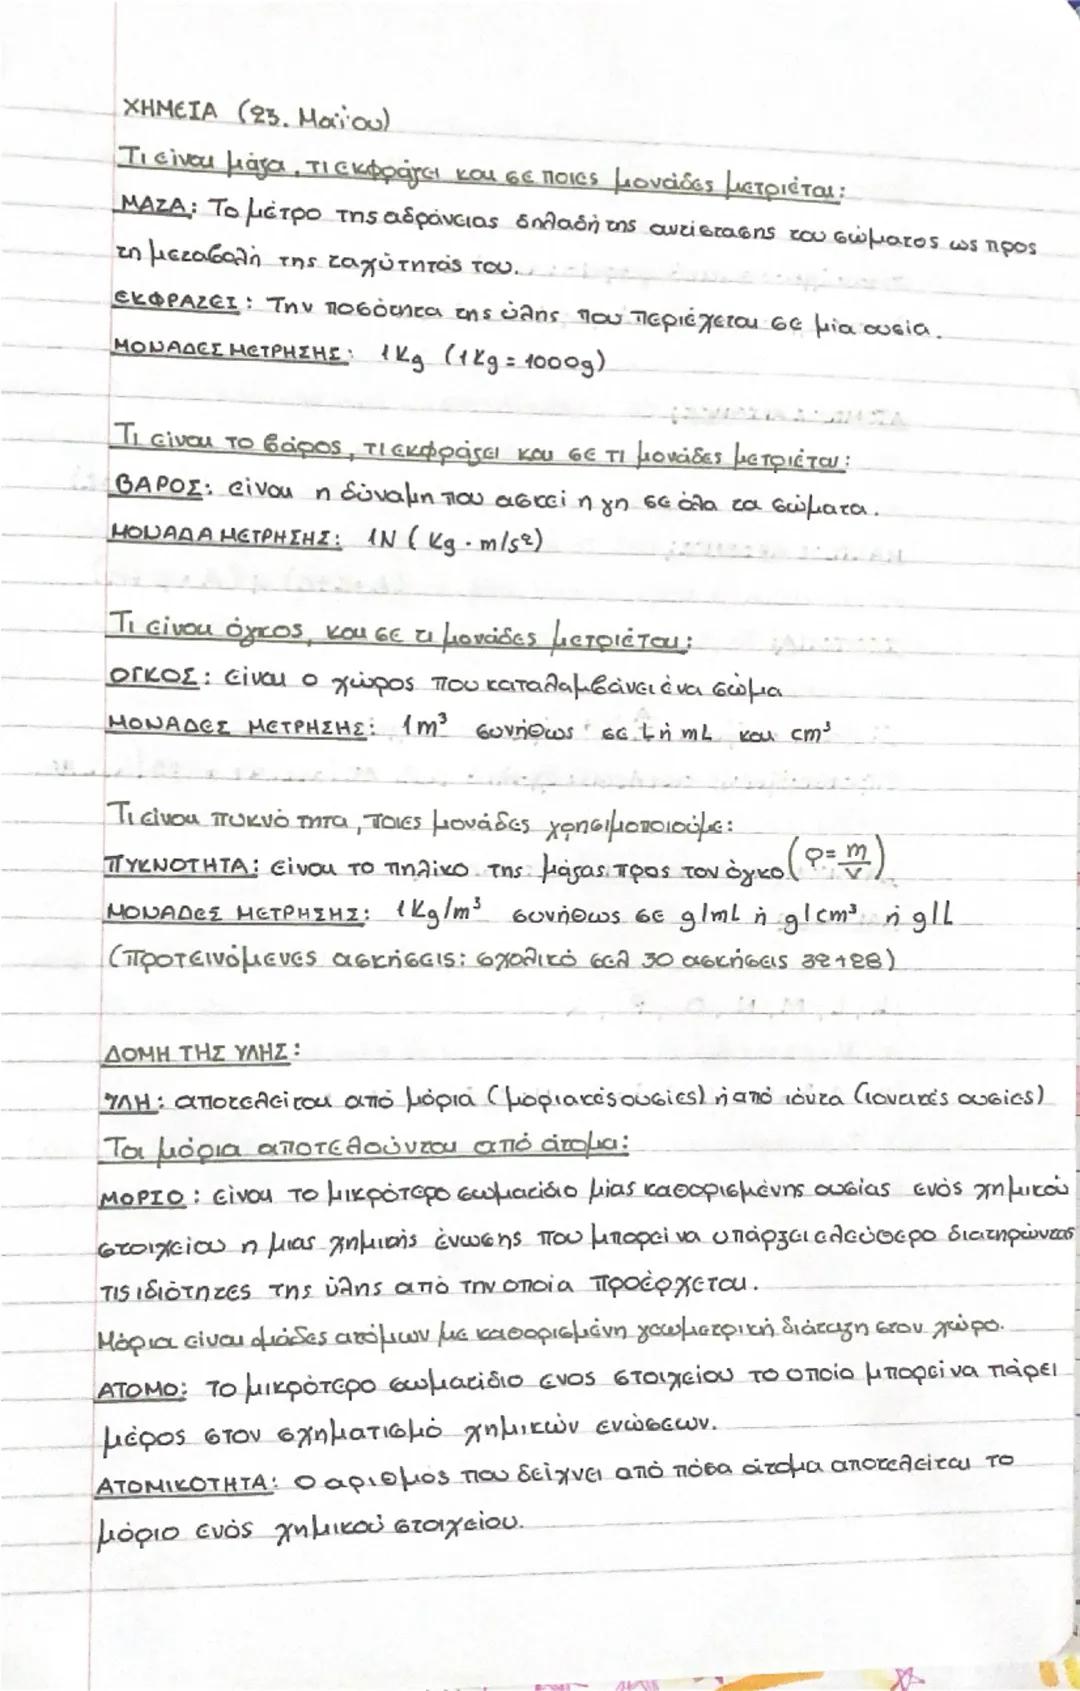 ΧΗΜΕΙΑ (23. Μαΐου)
Τι είναι μάζα, τι εκφράζει και σε ποιες μονάδες μετριέται:
ΜΑΖΑ: Το μέτρο της αδράνειας δηλαδή της αντίστασης του σώματος ως προς
τη μεταβολή της ταχύτητάς του.
ΕΚΦΡΑΖΕΙ: Την ποσότητα της ύλης που περιέχεται σε μία ουσία.
ΜΟΝΑΔΕΣ ΜΕΤΡΗΣΗΣ: 1Kg (1Kg = 1000g)
Τι είναι το βάρος, τι εκφράζει και σε τι μονάδες μετριέται:
ΒΑΡΟΣ: είναι η δύναμη που ασκεί η γη σε όλα τα σώματα.
ΜΟΝΑΔΑ ΜΕΤΡΗΣΗΣ: 1N (Kg · m/s²)
Τι είναι όγκος, και σε τι μονάδες μετριέται:
ΟΓΚΟΣ: είναι ο χώρος που καταλαμβάνει ένα σώμα
ΜΟΝΑΔΕΣ ΜΕΤΡΗΣΗΣ: 1m³ συνήθως σε L ή mL και cm³
Τι είναι πυκνότητα, ποιες μονάδες χρησιμοποιούμε:
ΠΥΚΝΟΤΗΤΑ: είναι το πηλίκο της μάζας προς τον όγκο (ρ= m/v)
ΜΟΝΑΔΕΣ ΜΕΤΡΗΣΗΣ: 1Kg/m³ συνήθως σε g/mL ή g/cm³ ή g/L
(Προτεινόμενες ασκήσεις: σχολικό σελ 30 ασκήσεις 32+28)
ΔΟΜΗ ΤΗΣ ΥΛΗΣ:
ΥΛΗ: αποτελείται από μόρια (μοριακές ουσίες) ή από ιόντα (ιοντικές ουσίες)
Τα μόρια αποτελούνται από άτομα:
ΜΟΡΙΟ: είναι το μικρότερο σωματίδιο μίας καθορισμένης ουσίας ενός χημικού
στοιχείου η μιας χημικής ένωσης που μπορεί να υπάρξει ελεύθερο διατηρώντας
τις ιδιότητες της ύλης από την οποία προέρχεται.
Μόρια είναι ομάδες ατόμων με καθορισμένη γεωμετρική διάταξη στον χώρο.
ΑΤΟΜΟ: το μικρότερο σωματίδιο ενος στοιχείου το οποίο μπορεί να πάρει
μέρος στον σχηματισμό χημικών ενώσεων.
ΑΤΟΜΙΚΟΤΗΤΑ: Ο αριθμος που δείχνει από πόσα άτομα αποτελείται το
μόριο ενός χημικού στοιχείου.